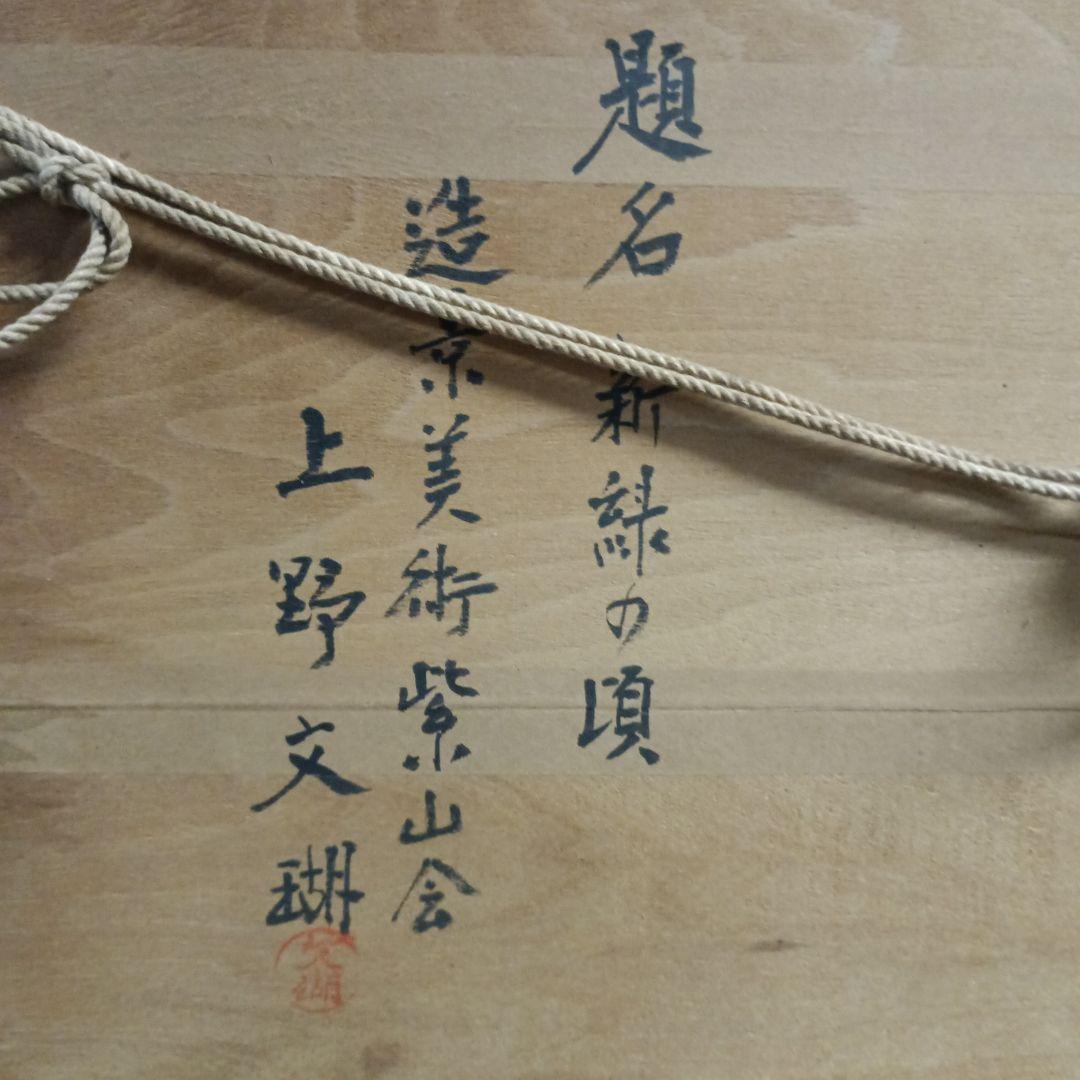 題名 新緑の頃
造景美術紫山会
上野文瑚
文瑚